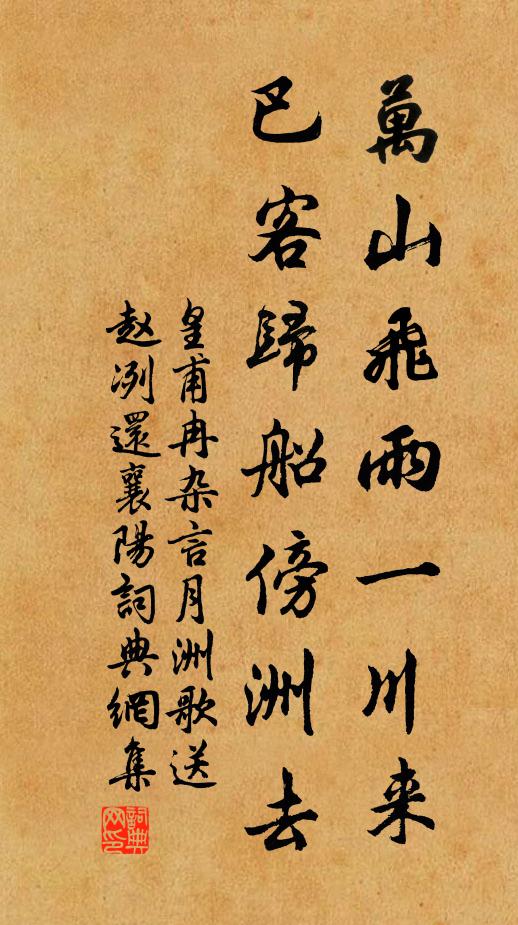 萬山飛雨一川来
巴客歸船傍洲去
皇甫冉杂言月洲歌送
赵冽還襄陽詞典網集
詞典网印